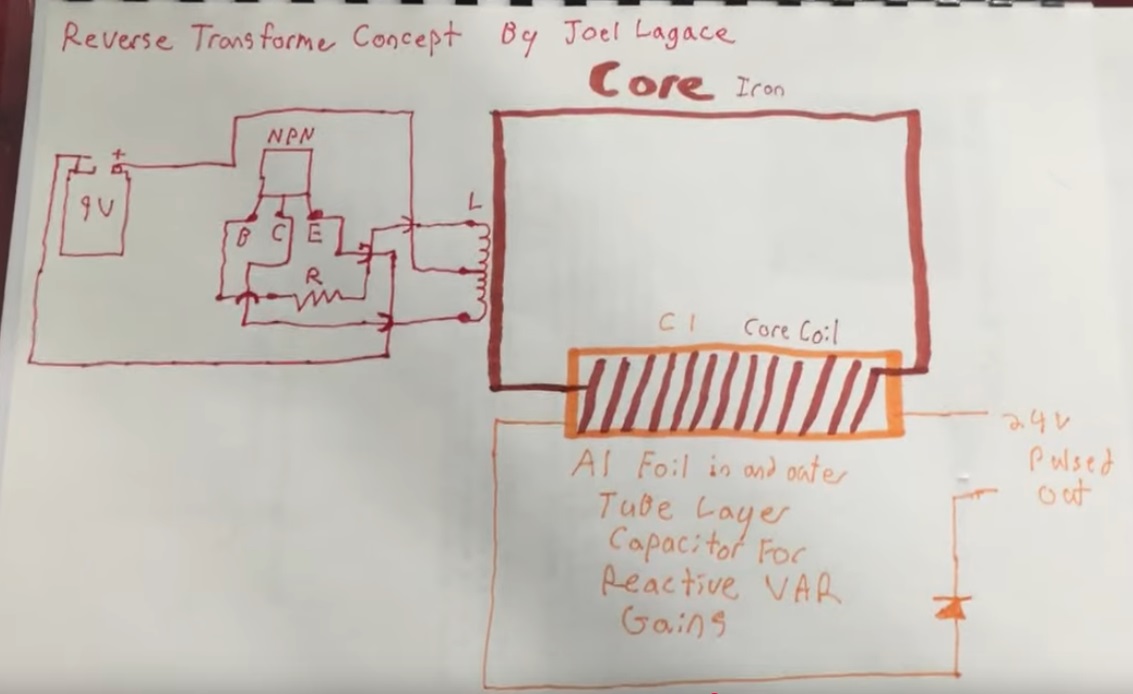 Reverse Transforme Concept By Joel Lagace
Core Iron
NPN
+
9V
B C E
L
R
C1 Core Coil
24V
Pulsed
out
Al Foil in and outer
Tube Layer
Capacitor For
Reactive VAR
Gains